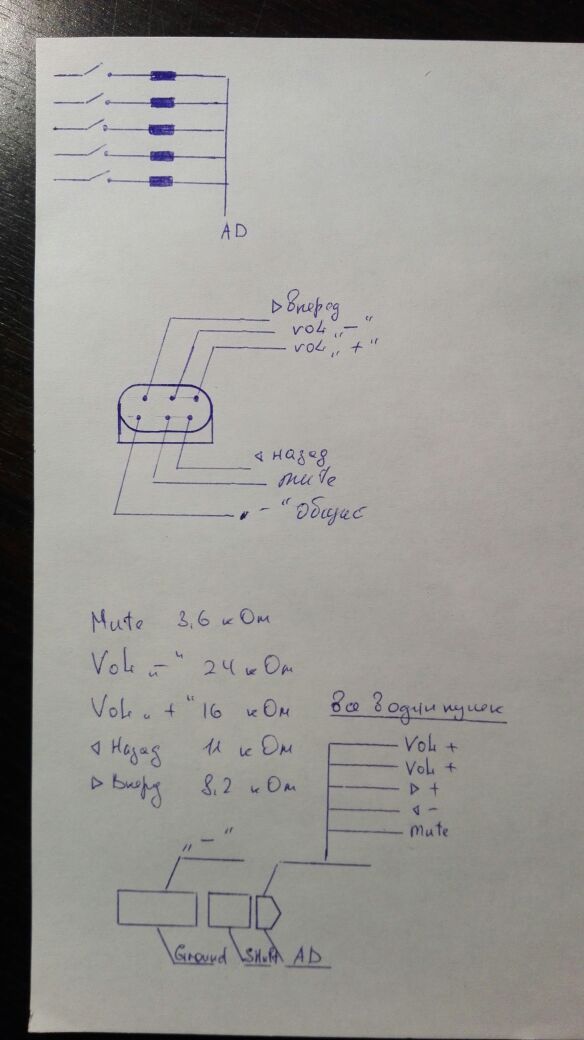 AD
▷ Вперед
VOL „–“
VOL „+“
◁ назад
mute
„–“ Общий
Mute 3,6 кОм
VOL „–“ 24 кОм
VOL „+“ 16 кОм
◁ Назад 11 кОм
▷ Вперд 8,2 кОм
Все в один пучек
VOL +
VOL +
▷ +
◁ –
mute
„–“
Ground SHift AD